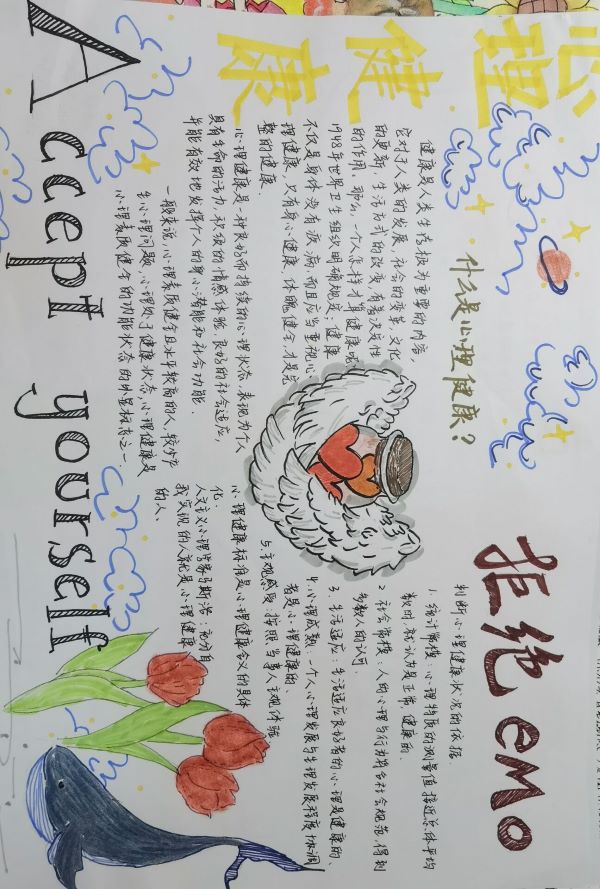 心理健康
什么是心理健康?
健康是人类生存极为重要的内容,
它对于人类的发展,社会的变革,文化
的更新,生活方式的改变,有着决定性
的作用。那么,一个怎样才算健康呢
1948年世界卫生组织明确规定:健康
不仅是身体没有疾病,而且应当重视心
理健康,只有身心健康、体魄健全,才是完
整的健康.
心理健康是一种良好而持续的心理状态,表现为个人
具有生命的活力,积极的情感体验,良好的社会适应,
并能有效地发挥个人的身心潜能和社会功能.
一般来说,心理素质健全且水平较高的人,较少产
生心理问题,心理处于健康状态,心理健康是
心理素质健全的功能状态的外显标志之一.
拒绝emo
判断心理健康状况的依据
1.统计常模:心理特质的测量值接近总体平均
数时,就认为是正常、健康的.
2.社会常模:人的心理与行为符合社会规范,得到
多数人的认可.
3.生活适应:生活适应良好者的心理是健康的.
4.心理成熟:一个人心理发展与生理发展程度协调
者是心理健康的.
5.主观感受:按照当事人主观体验
心理健康标准是心理健康含义的具体
化.
人本主义心理学家马斯洛:充分自
我实现的人就是心理健康
的人.
Accept yourself